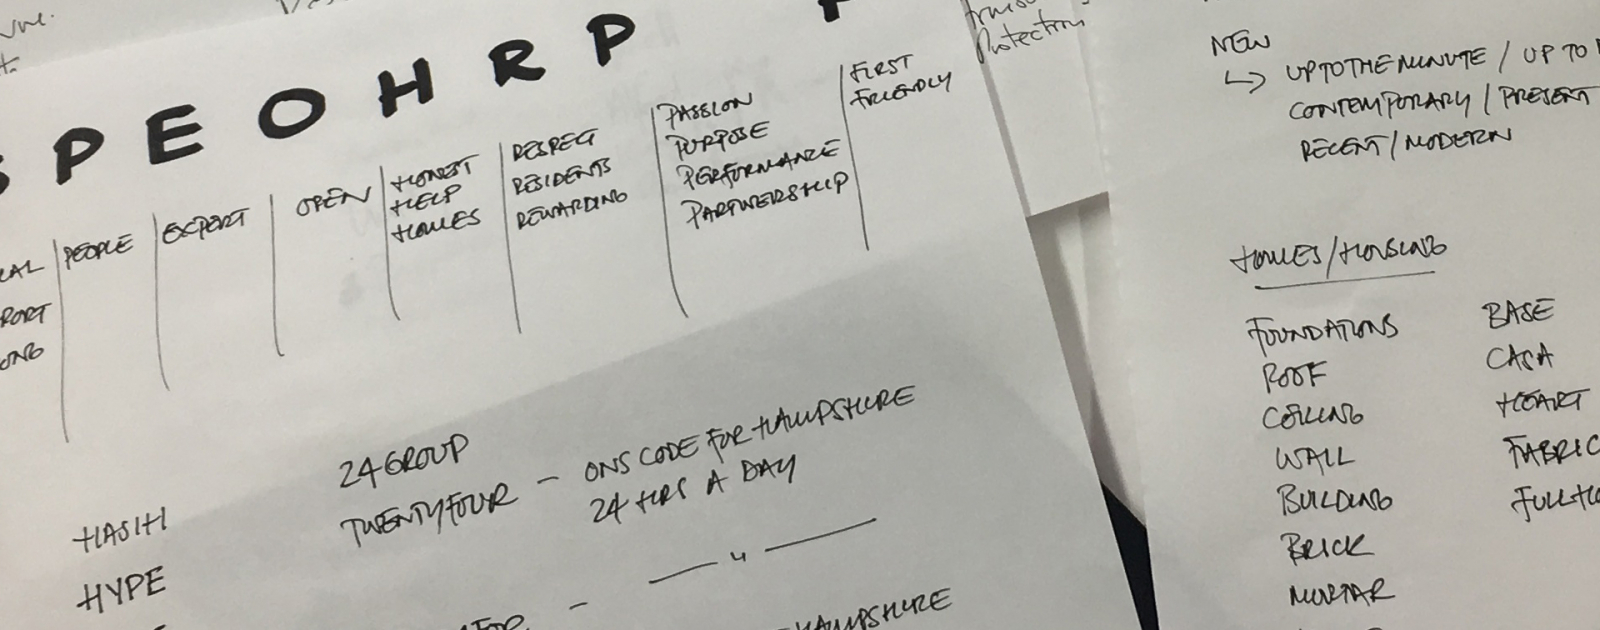 PEOHRP
PEOPLE
EXPERT
OPEN
HONEST
HELP
HOMES
RESPECT
RESIDENTS
REWARDING
PASSION
PURPOSE
PERFORMANCE
PARTNERSHIP
FIRST
FRIENDLY
24 GROUP
TWENTYFOUR - ONS CODE FOR HAMPSHIRE
24 HRS A DAY
HASHI
HYPE
4
HAMPSHIRE
Protection
NEW
UPTOTHEMINUTE / UP TO
CONTEMPORARY / PRESENT
RECENT / MODERN
HOMES/HOUSING
FOUNDATIONS
ROOF
CEILING
WALL
BUILDING
BRICK
MORTAR
BASE
CASA
HEART
FABRIC